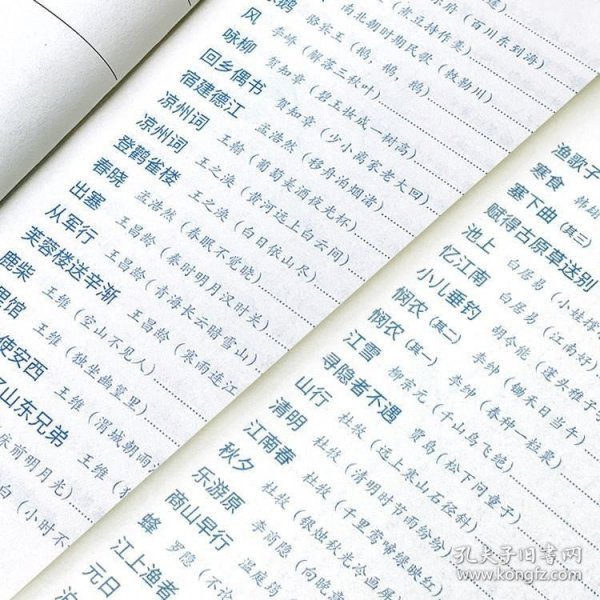 乐府（百川东到海）
（煮豆持作羹）
南北朝时期民歌（敕勒川）
骆宾王（鹅，鹅，鹅）
风 李峤（解落三秋叶）
咏柳 贺知章（碧玉妆成一树高）
回乡偶书 贺知章（少小离家老大回）
宿建德江 孟浩然（移舟泊烟渚）
凉州词 王翰（葡萄美酒夜光杯）
凉州词 王之涣（黄河远上白云间）
登鹳雀楼 王之涣（白日依山尽）
春晓 孟浩然（春眠不觉晓）
出塞 王昌龄（秦时明月汉时关）
从军行 王昌龄（青海长云暗雪山）
芙蓉楼送辛渐 王昌龄（寒雨连江
鹿柴 王维（空山不见人）
里馆 王维（独坐幽篁里）
使安西 王维（渭城朝雨
山东兄弟 王维（独
床前明月光）
白（小时不
渔歌子
寒食 韩翃
塞下曲（其三）
赋得古原草送别
池上 白居易（小娃撑
忆江南 白居易（江南好
小儿垂钓 胡令能（蓬头稚子
悯农（其二） 李绅（锄禾日当午）
悯农（其一） 李绅（春种一粒粟）
江雪 柳宗元（千山鸟飞绝）
寻隐者不遇 贾岛（松下问童子）
山行 杜牧（远上寒山石径斜）
清明 杜牧（清明时节雨纷纷）
江南春 杜牧（千里莺啼绿映红）
秋夕 杜牧（银烛秋光冷画屏
乐游原 李商隐（向晚意
商山早行 温庭筠
蜂 罗隐（不论
江上渔者
元日
孔夫子旧书网
www.kongfz.com